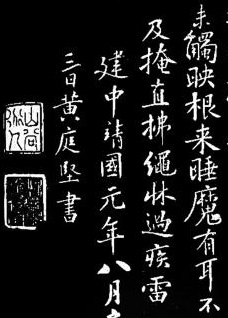 未觸映根来睡魔有耳不
及掩直拂繩牀過疾雷
建中靖國元年八月
三日黄庭堅書
山谷道人